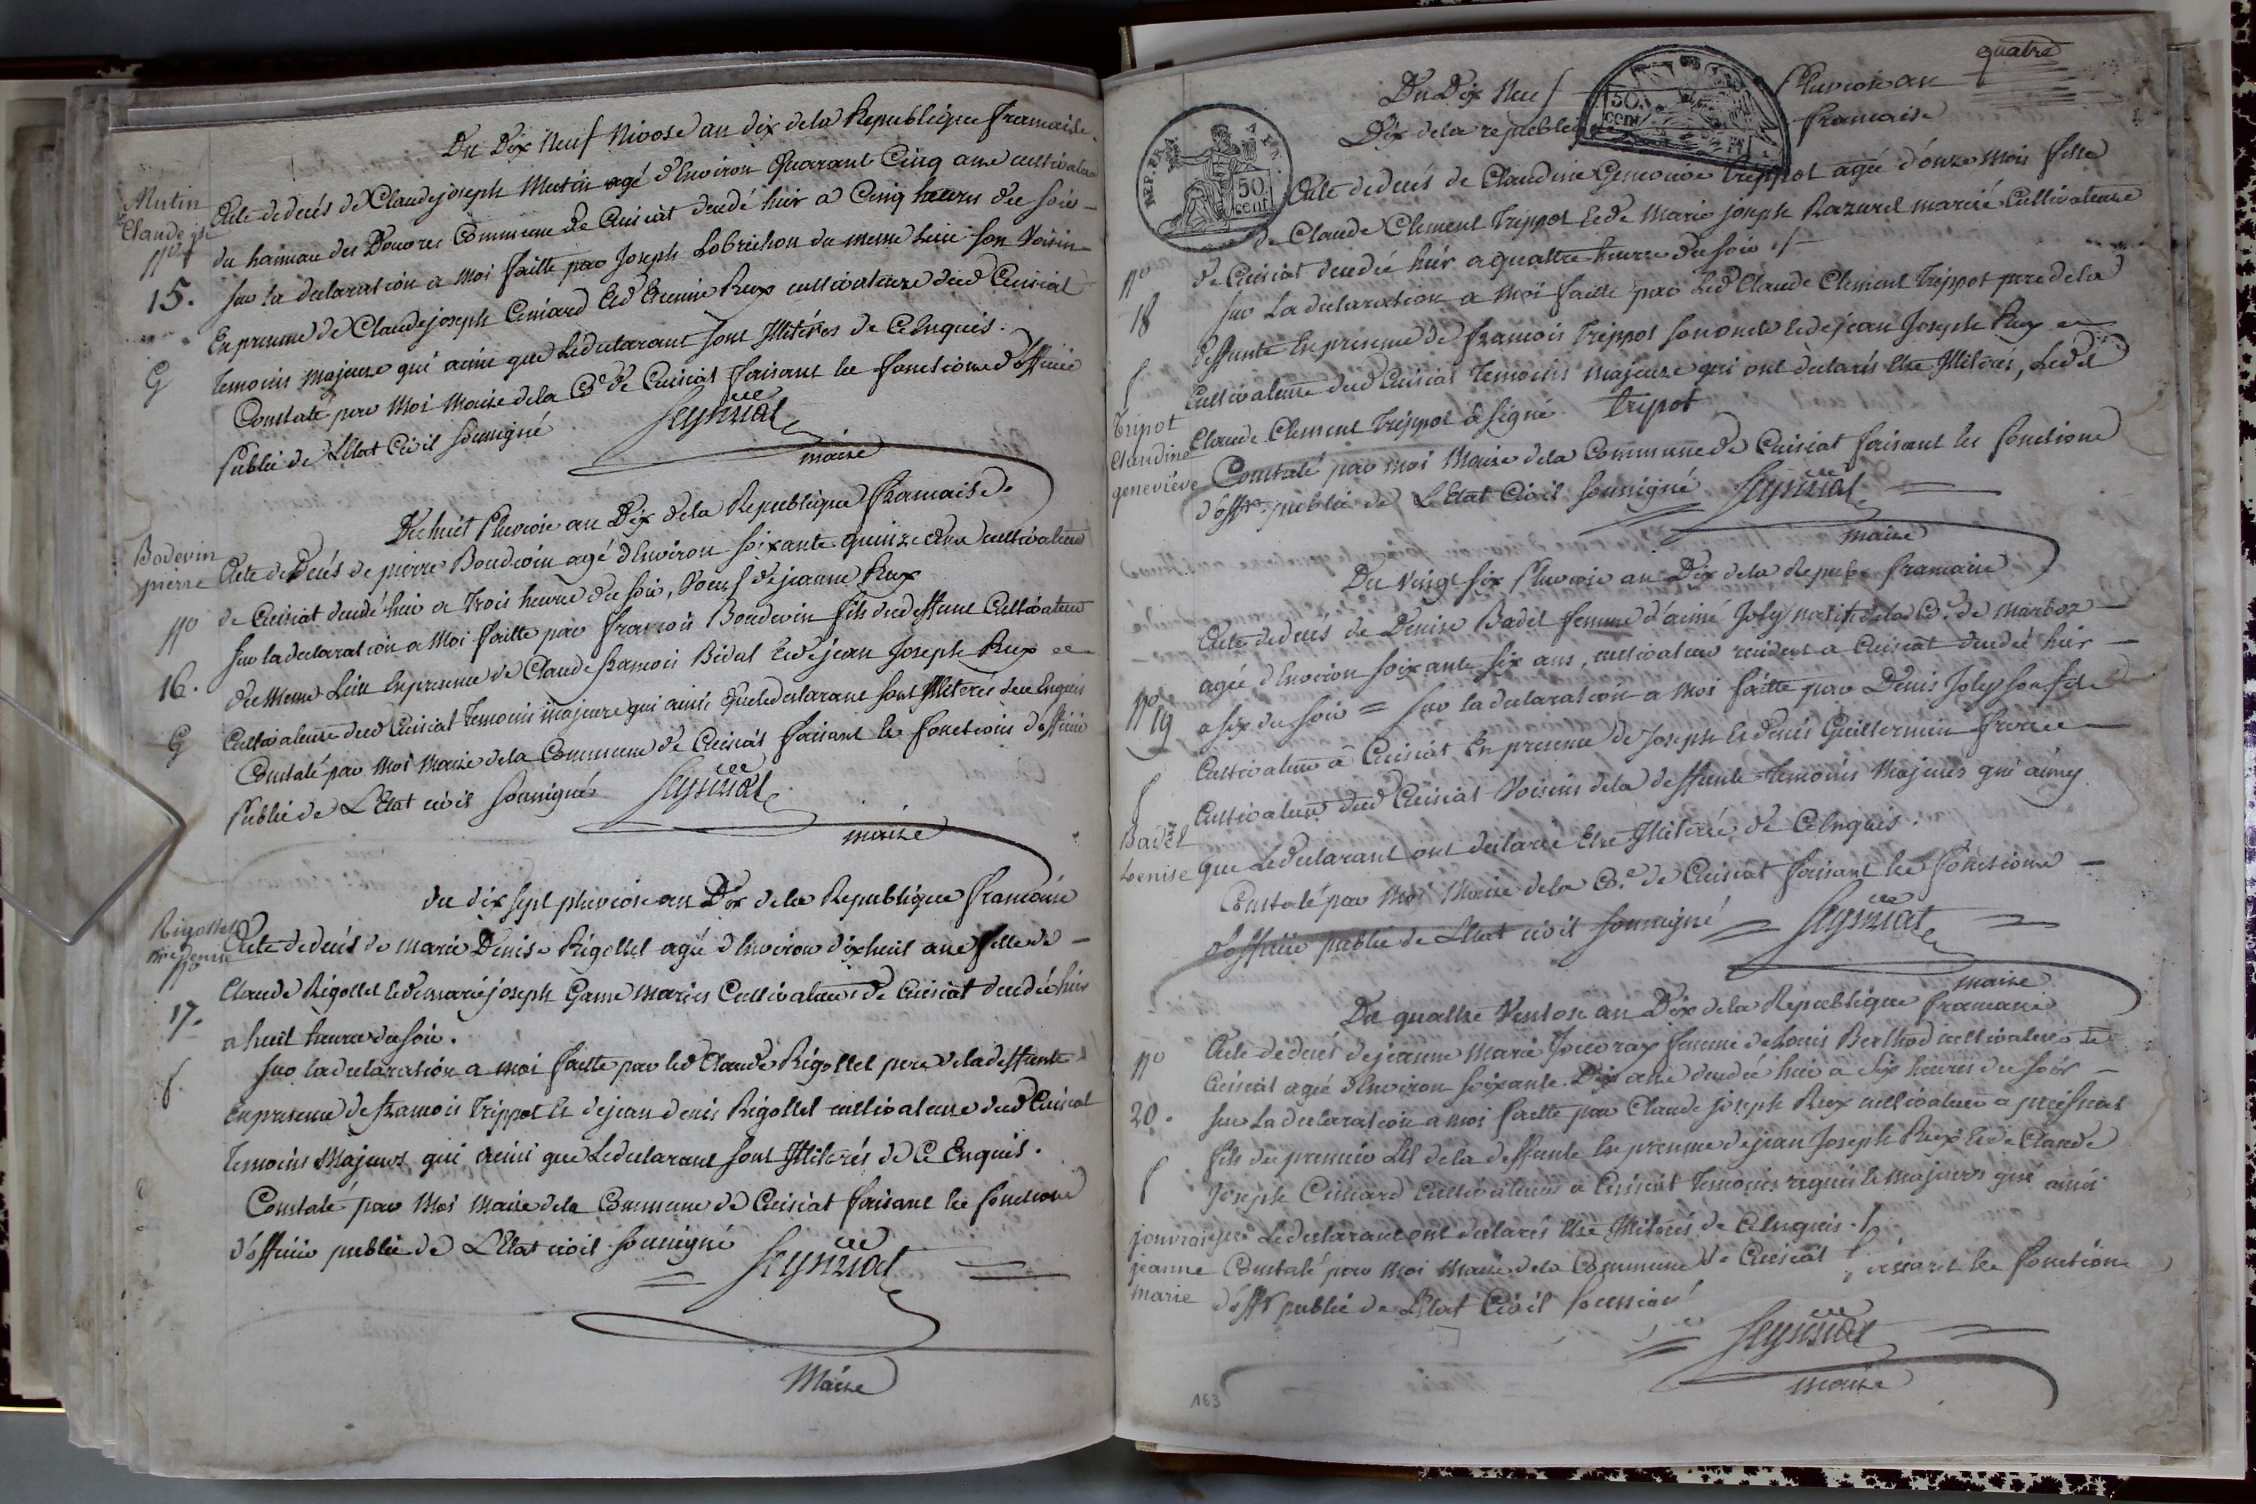 Du Dix Neuf Nivose an dix dela Republique francaise.
Mutin
Claude jph
Acte dedecés de Claudejoseph Mutin agé d'Environ Quarante Cinq ans cultivateur
du hamau des Commune de Cuisiat decedé hier a Cinq heures du soir
nº
15.
sur la declaration a moi faitte par Joseph Lobrichon du meme Lieu son Voisin
En presence de Claudejoseph Cuniard Et d' Rux cultivateurs dud Cuisiat
G
temoins majeurs qui ainsi que Ledeclarant sont Illiterés de ce Enquis.
Constaté par Moi Maire dela Cne de Cuisiat faisant les fonctions d'officier
Public de L'Etat Civil soussigné
maire
Du huit Pluviose an Dix dela Republique francaise.
Bodevin
pierre
Acte de Decés de pierre Boudevin agé d'Environ soixante quinze ans cultivateur
nº
de Cuisiat decedé hier a Trois heures du soir, Veuf de jeanne Rux
sur la declaration a Moi faitte par francois Boudevin fils dudeffunt Cultivateur
16.
du Meme Lieu En presence de Claude francois Bidal Et de jean Joseph Rux
G
Cultivateurs dud Cuisiat Temoins majeurs qui ainsi que ledeclarant sont Illiterés de ce Enquis
Constaté par Moi Maire dela Commune de Cuisiat faisant les fonctions d'officier
Public de L'Etat civil soussigné
maire
du dix sept pluviose an Dix dela Republique francaise
Rigollet
mie denise
Acte dedecés de marie Denise Rigollet agée d'Environ dixhuit ans fille de
nº
17.
Claude Rigollet Et de marie joseph Game mariés Cultivateurs de Cuisiat decedée hier
a huit heures du soir.
f.
sur la declaration a moi faitte par led Claude Rigollet pere dela deffunte
En presence de francois Trippot Et de jean denis Rigollet cultivateurs dud Cuisiat
temoins Majeurs qui ainsi que Ledeclarant sont Illiterés de Ce Enquis.
Constaté par Moi Maire dela Commune de Cuisiat faisant les fonctions
d'officier public de L'Etat civil soussigné
Maire
quatre
Du Dix Neuf Pluviose an
Dix de la republique francaise
50 cent
50 cent
Acte dedecés de Claudine Genevieve Trippot agée d'onze mois fille
de Claude Clement Trippot Et de Marie joseph Razurel mariés Cultivateurs
nº
18
de Cuisiat decedée hier a quattre heures du soir
sur La declaration a Moi faitte par Led Claude Clement Trippot pere de la
deffunte En presence de francois Trippot son oncle Et de jean Joseph Rux
f
Cultivateurs dud Cuisiat Temoins majeurs qui ont declarés Etre Illiterés, Ledit
Tripot
Claudine
genevieve
Claude Clement Trippot a signé Tripot
Constaté par moi Maire dela Commune de Cuisiat faisant les fonctions
d'offer public de L'Etat Civil soussigné
maire
Du vingt six Pluviose an Dix de la Repube francaise
Acte dedecés de Denise Badel femme d'aimé Joly natif de la Cne de marboz
agée d'Environ soixante six ans, cultivateur resident a Cuisiat decedée hier
nº
19
a six du soir = sur la declaration a moi faitte par Denis Joly son fils
Cultivateur a Cuisiat En presence de Joseph Et denis Guillermin freres
f
Cultivateurs dud Cuisiat Voisins dela deffunte Temoins Majeurs qui ainsy
Badel
Denise
que Ledeclarant ont declaré Etre Illiteré de Ce Enquis.
Constaté par Moi Maire dela Cne de Cuisiat faisant les fonctions
d'officier public de L'Etat civil soussigné
maire
Du quattre Ventose an Dix dela Republique francaise
nº
20.
Acte dedecés de jeanne Marie Jouvray femme de Louis Berthod cultivateur de
Cuisiat agée d'Environ soixante Dix ans decedée hier a Six heures du soir
sur La declaration a moi faitte par Claude joseph Rux cultivateur a
fils du premier Lit dela deffunte En presence de jean Joseph Rux Et de Claude
f
Joseph Cuniard cultivateurs a Cuisiat Temoins requis Et majeurs qui ainsi
jouvray
jeanne
marie
que Ledeclarant ont declarés Etre Illiterés de Ce Enquis.
Constaté par Moi Maire dela Commune de Cuisiat faisant les fonctions
d'offer public de L'Etat Civil soussigné
maire
163